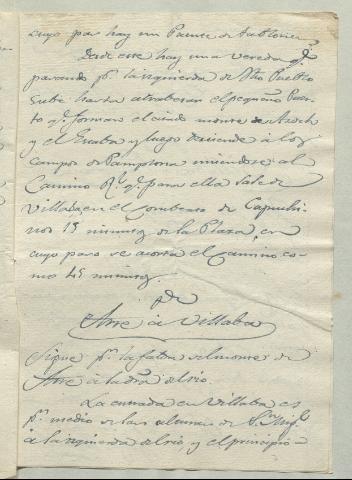 cuyo paso hay un Puente de tablones.
Desde este hay una vereda q.e
pasando p.r la izquierda de dho Pueblo
sube hasta atrabesar el pequeño Puer-
to q.e forman el citado monte de
y el Ezcaba y luego desciende à los
campos de Pamplona uniendose al
Camino R.l q.e para ella sale de
Villaba, en el Combento de Capuchi-
nos 15 minutos de la Plaza, en
cuyo paso se acorta el camino co-
mo 45 minutos.
De
Arre à Villaba
Sigue p.r la falda del monte de
Arre à la dra del rio.
La entrada en Villaba es
p.r medio de las alturas de S.n Mig.l
à la izquierda del rio, y el principio